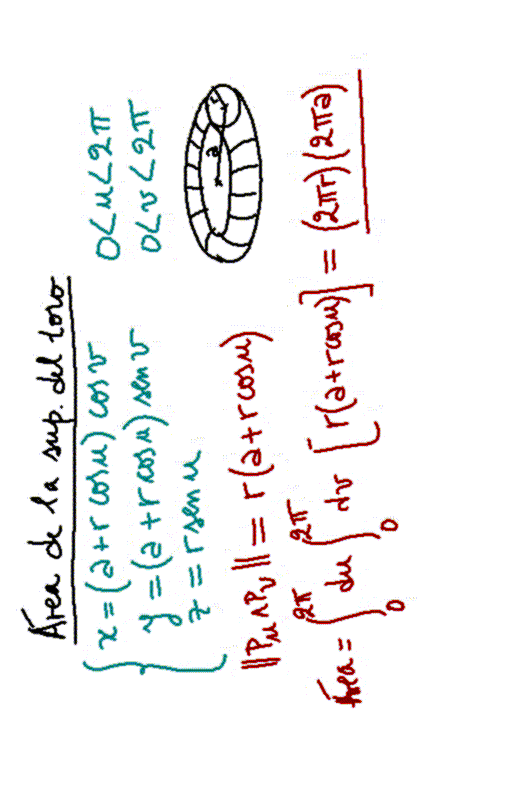 Área de la sup. del toro
x = (a + r cos u) cos v 0 < u < 2π
y = (a + r cos u) sen v 0 < v < 2π
z = r sen u
a r
||Pu ∧ Pv|| = r(a + r cos u)
Área = ∫₀^2π du ∫₀^2π dv [r(a + r cos u)] = (2πr)(2πa)